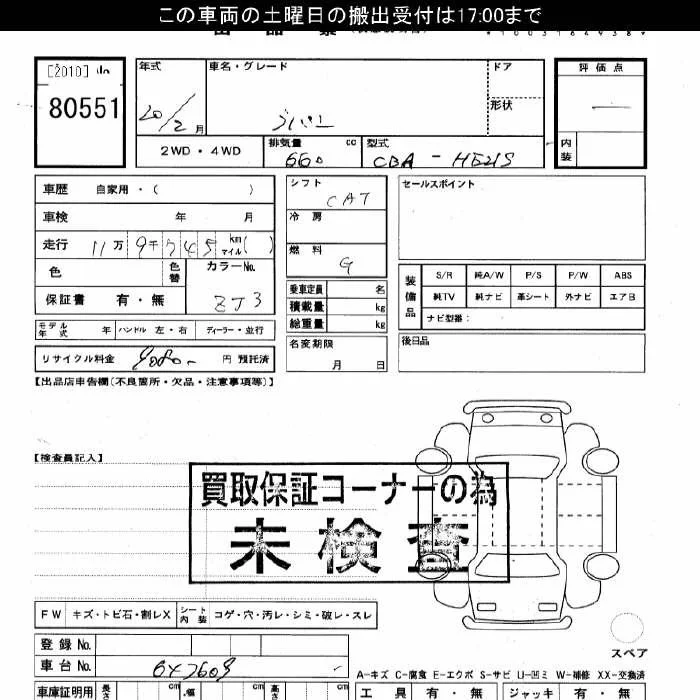 この車両の土曜日の搬出受付は17:00まで
[2010]
80551
年式
20/2月
車名・グレード
ドア
形状
評価点
内装
2WD・4WD
排気量 660 cc
型式 CBA - HE21S
車歴 自家用・( )
車検 年 月
走行 11万9千745 km マイル( )
色
色替
カラーNo. ZJ3
保証書 有・無
シフト CAT
冷房
燃料 G
乗車定員 名
積載量 kg
総重量 kg
セールスポイント
装備品
S/R 純A/W P/S P/W ABS
純TV 純ナビ 革シート 外ナビ エアB
ナビ型番:
モデル年式 年 ハンドル 左・右 ディーラー・並行
名変期限 月 日
後日品
リサイクル料金 円 預託済
【出品店申告欄(不良箇所・欠品・注意事項等)】
【検査員記入】
買取保証コーナーの為
未検査
FW キズ・トビ石・割レX シート内装 コゲ・穴・汚レ・シミ・破レ・スレ
スペア
登録No.
車台No.
A-キズ C-腐食 E-エクボ S-サビ U-凹ミ W-補修 XX-交換済
車庫証明用 長さ cm 幅 cm 高さ cm
工具 有・無 ジャッキ 有・無